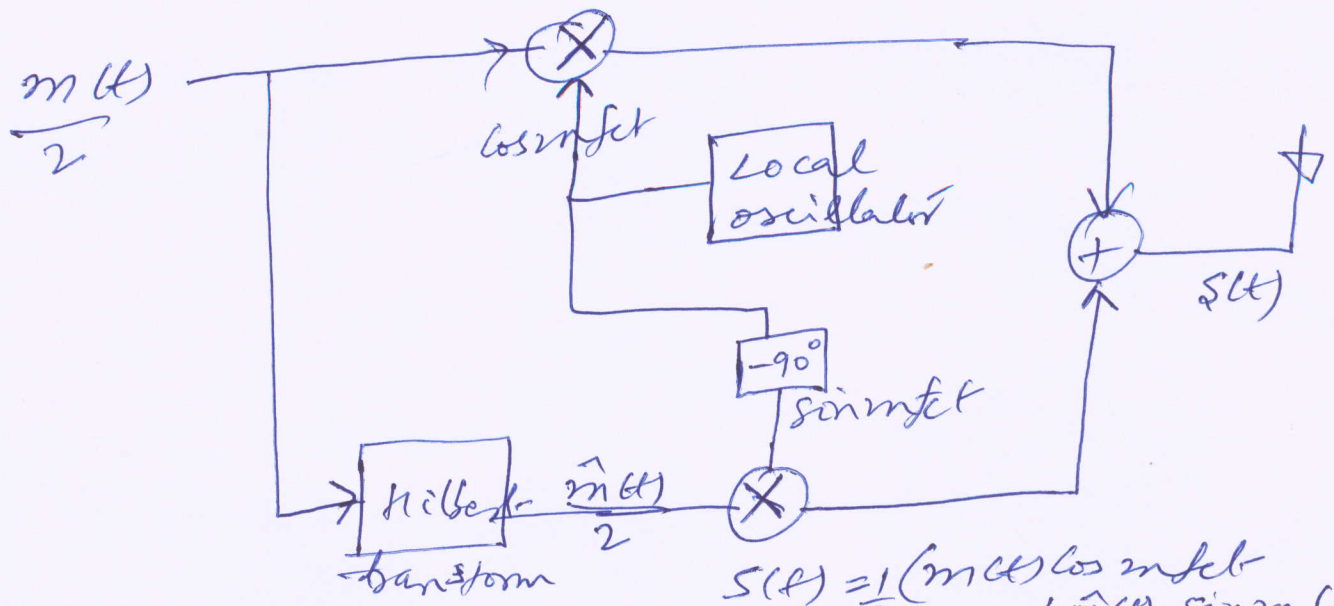 m(t)
2
cos2πfct
Local
oscillator
+
S(t)
-90°
sin2πfct
Hilbert
transform
m̂(t)
2
S(t) = 1 (m(t) cos2πfct